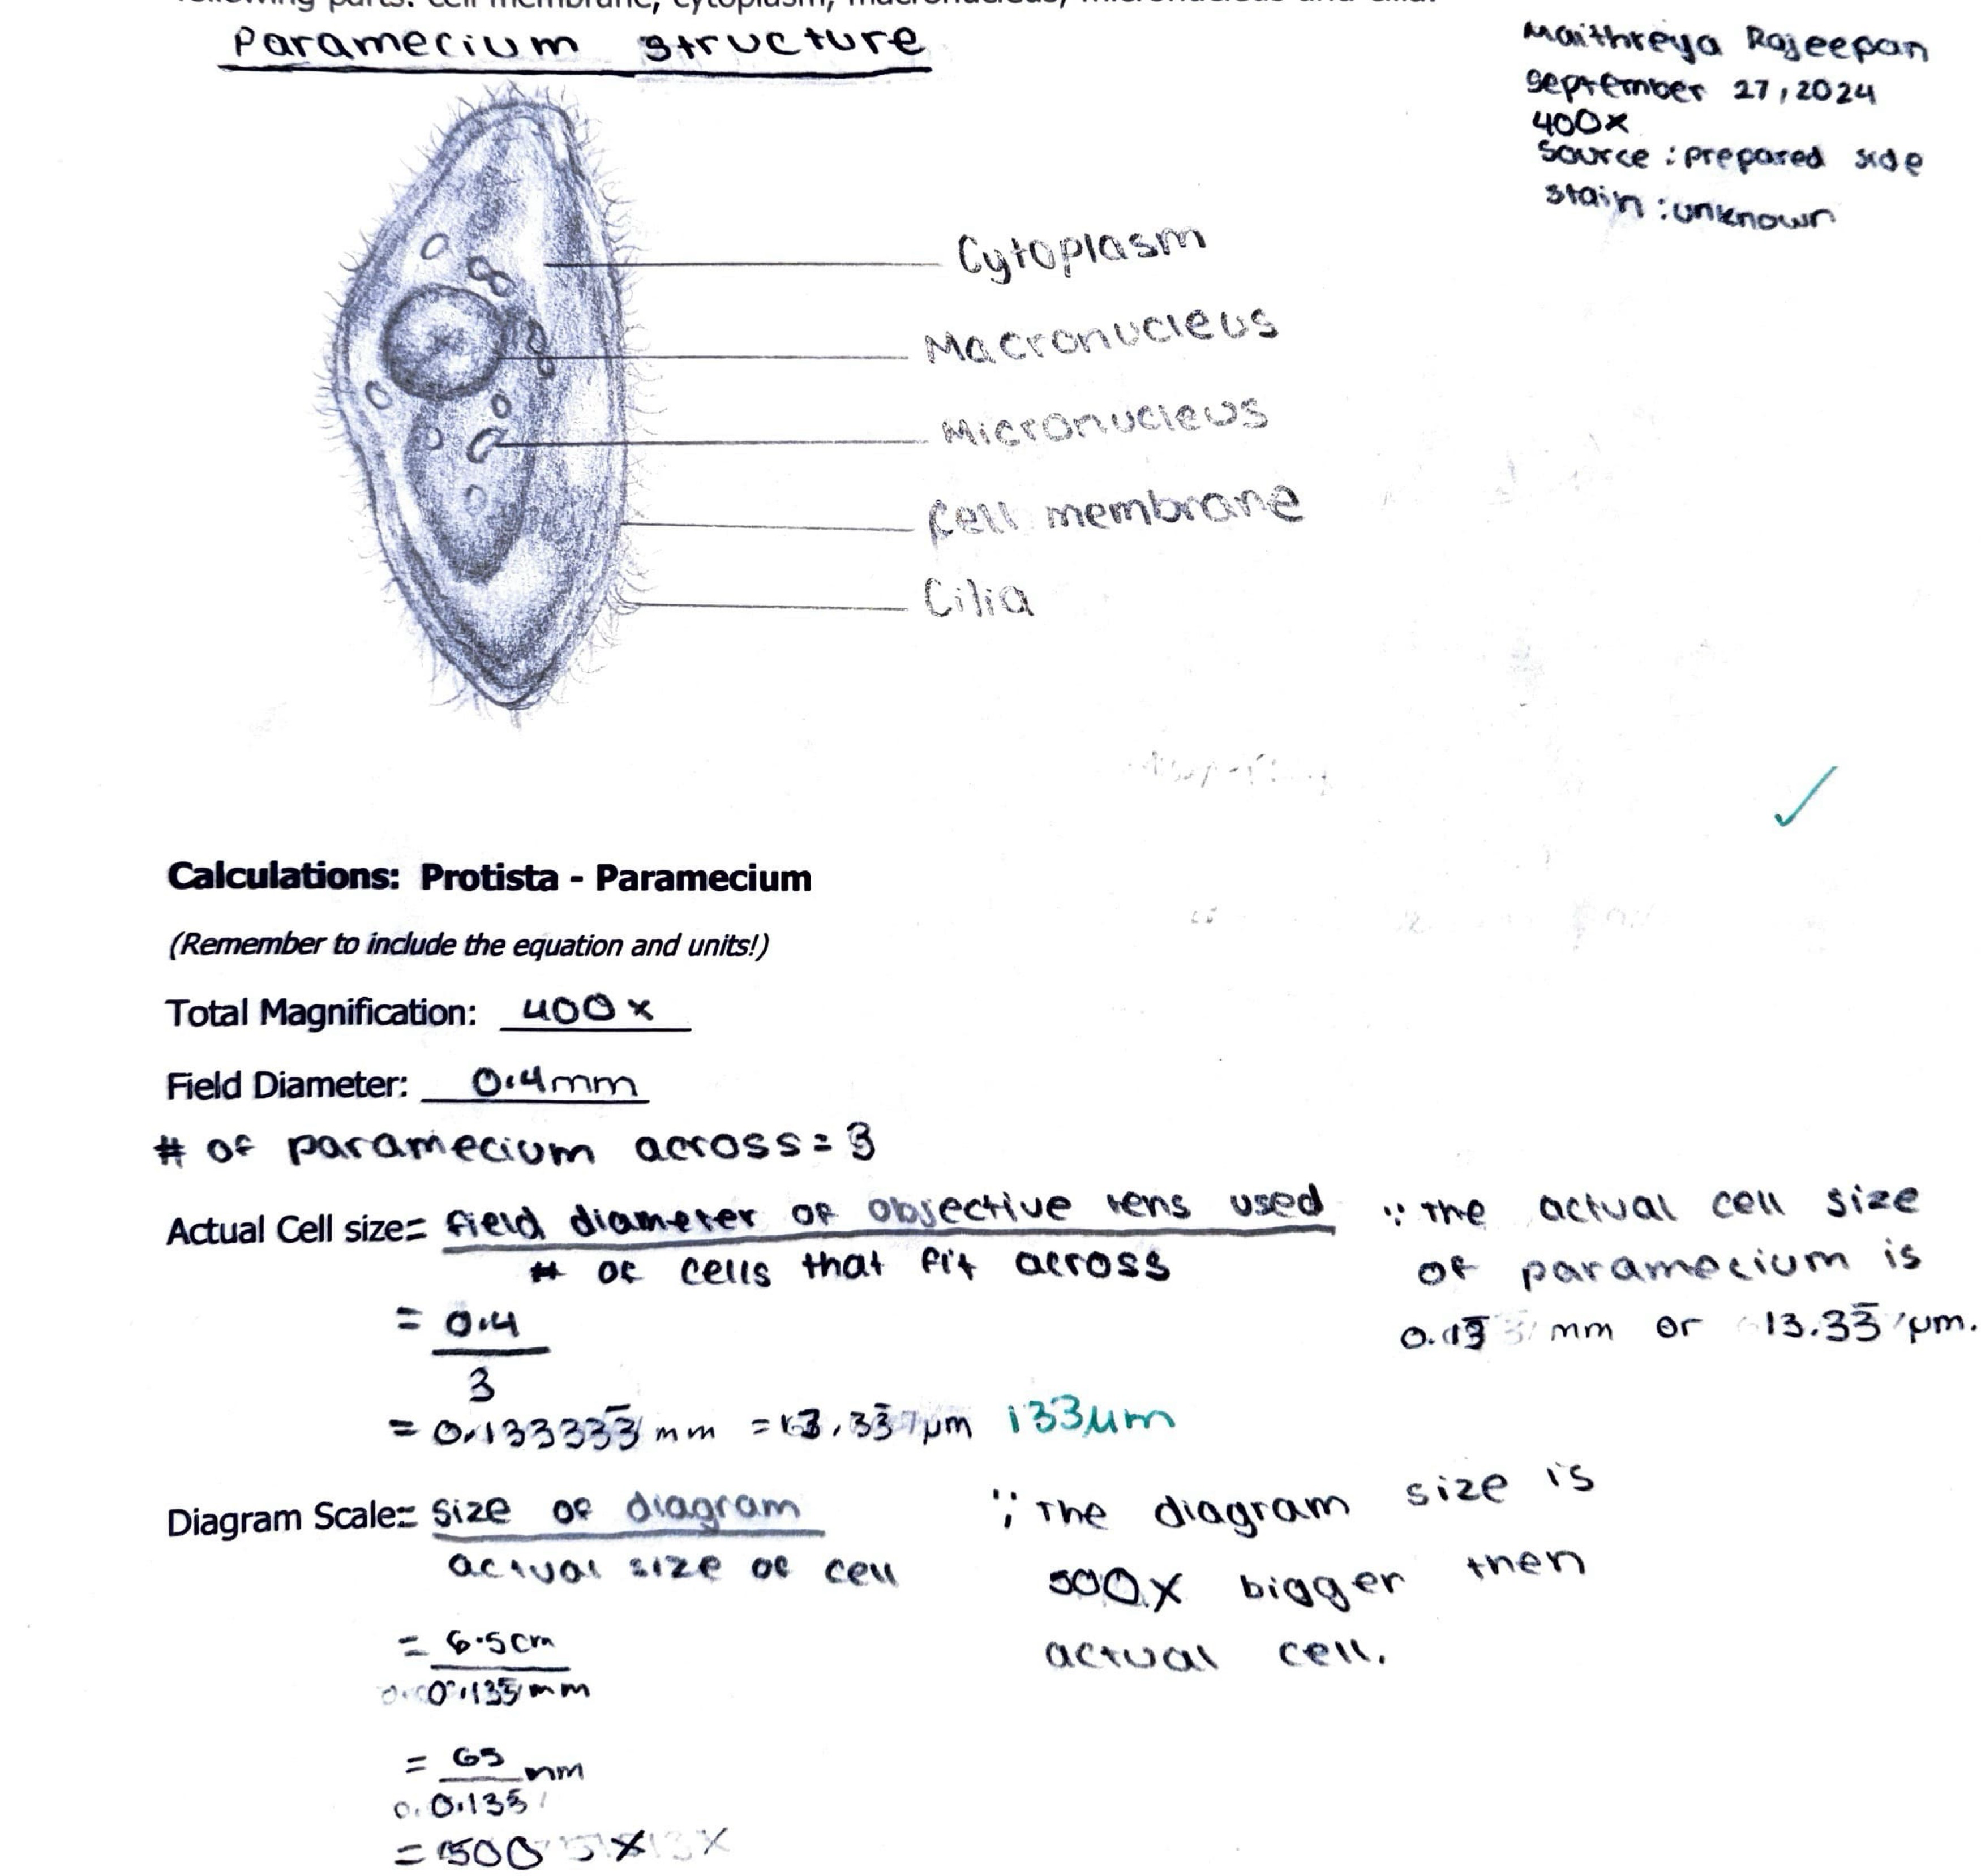 following parts: cell membrane, cytoplasm, macronucleus, micronucleus and cilia.
Paramecium structure
Maithreya Rajeepan
September 27, 2024
400x
Source : prepared side
stain : unknown
Cytoplasm
Macronucleus
Micronucleus
Cell membrane
Cilia
Calculations: Protista - Paramecium
(Remember to include the equation and units!)
Total Magnification: 400x
Field Diameter: 0.4mm
# of paramecium across = 3
Actual Cell size= field diameter of objective lens used
# of cells that fit across
= 0.4
3
= 0.133333̅ mm = 13.33̅ µm 133µm
∵ The actual cell size
of paramecium is
0.13̅ mm or 13.33̅ µm.
Diagram Scale= size of diagram
actual size of cell
= 6.5cm
mm
= 65 mm
= 500 x
∵ The diagram size is
500x bigger then
actual cell.